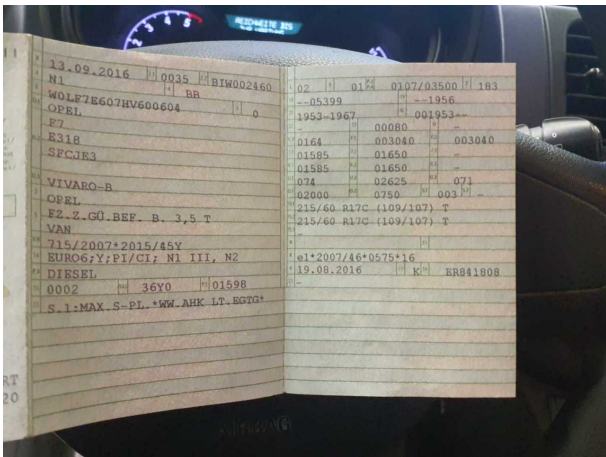 REICHWEITE BIS
13.09.2016 0035 BIW002460
N1 BB
W0LF7E607HV600604 0
OPEL
F7
E318
SFCJE3
VIVARO-B
OPEL
FZ.Z.GÜ.BEF. B. 3,5 T
VAN
715/2007*2015/45Y
EURO6;Y;PI/CI; N1 III, N2
DIESEL
0002 36Y0 01598
S.1:MAX.S-PL.*WW.AHK LT.EGTG*
02 01 0107/03500 183
--05399 --1956
1953-1967 001953--
- 00080 -
0164 003040 003040
01585 01650 -
01585 01650 -
074 02625 071
02000 0750 003 -
215/60 R17C (109/107) T
215/60 R17C (109/107) T
-
e1*2007/46*0575*16
19.08.2016 K ER841808
-
RT
20
AIRBAG